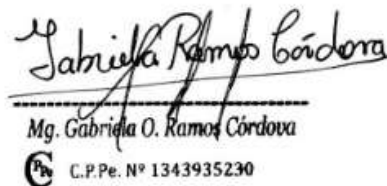 Gabriela Ramos Córdova
Mg. Gabriela O. Ramos Córdova
CPPe C.P.Pe. Nº 1343935230